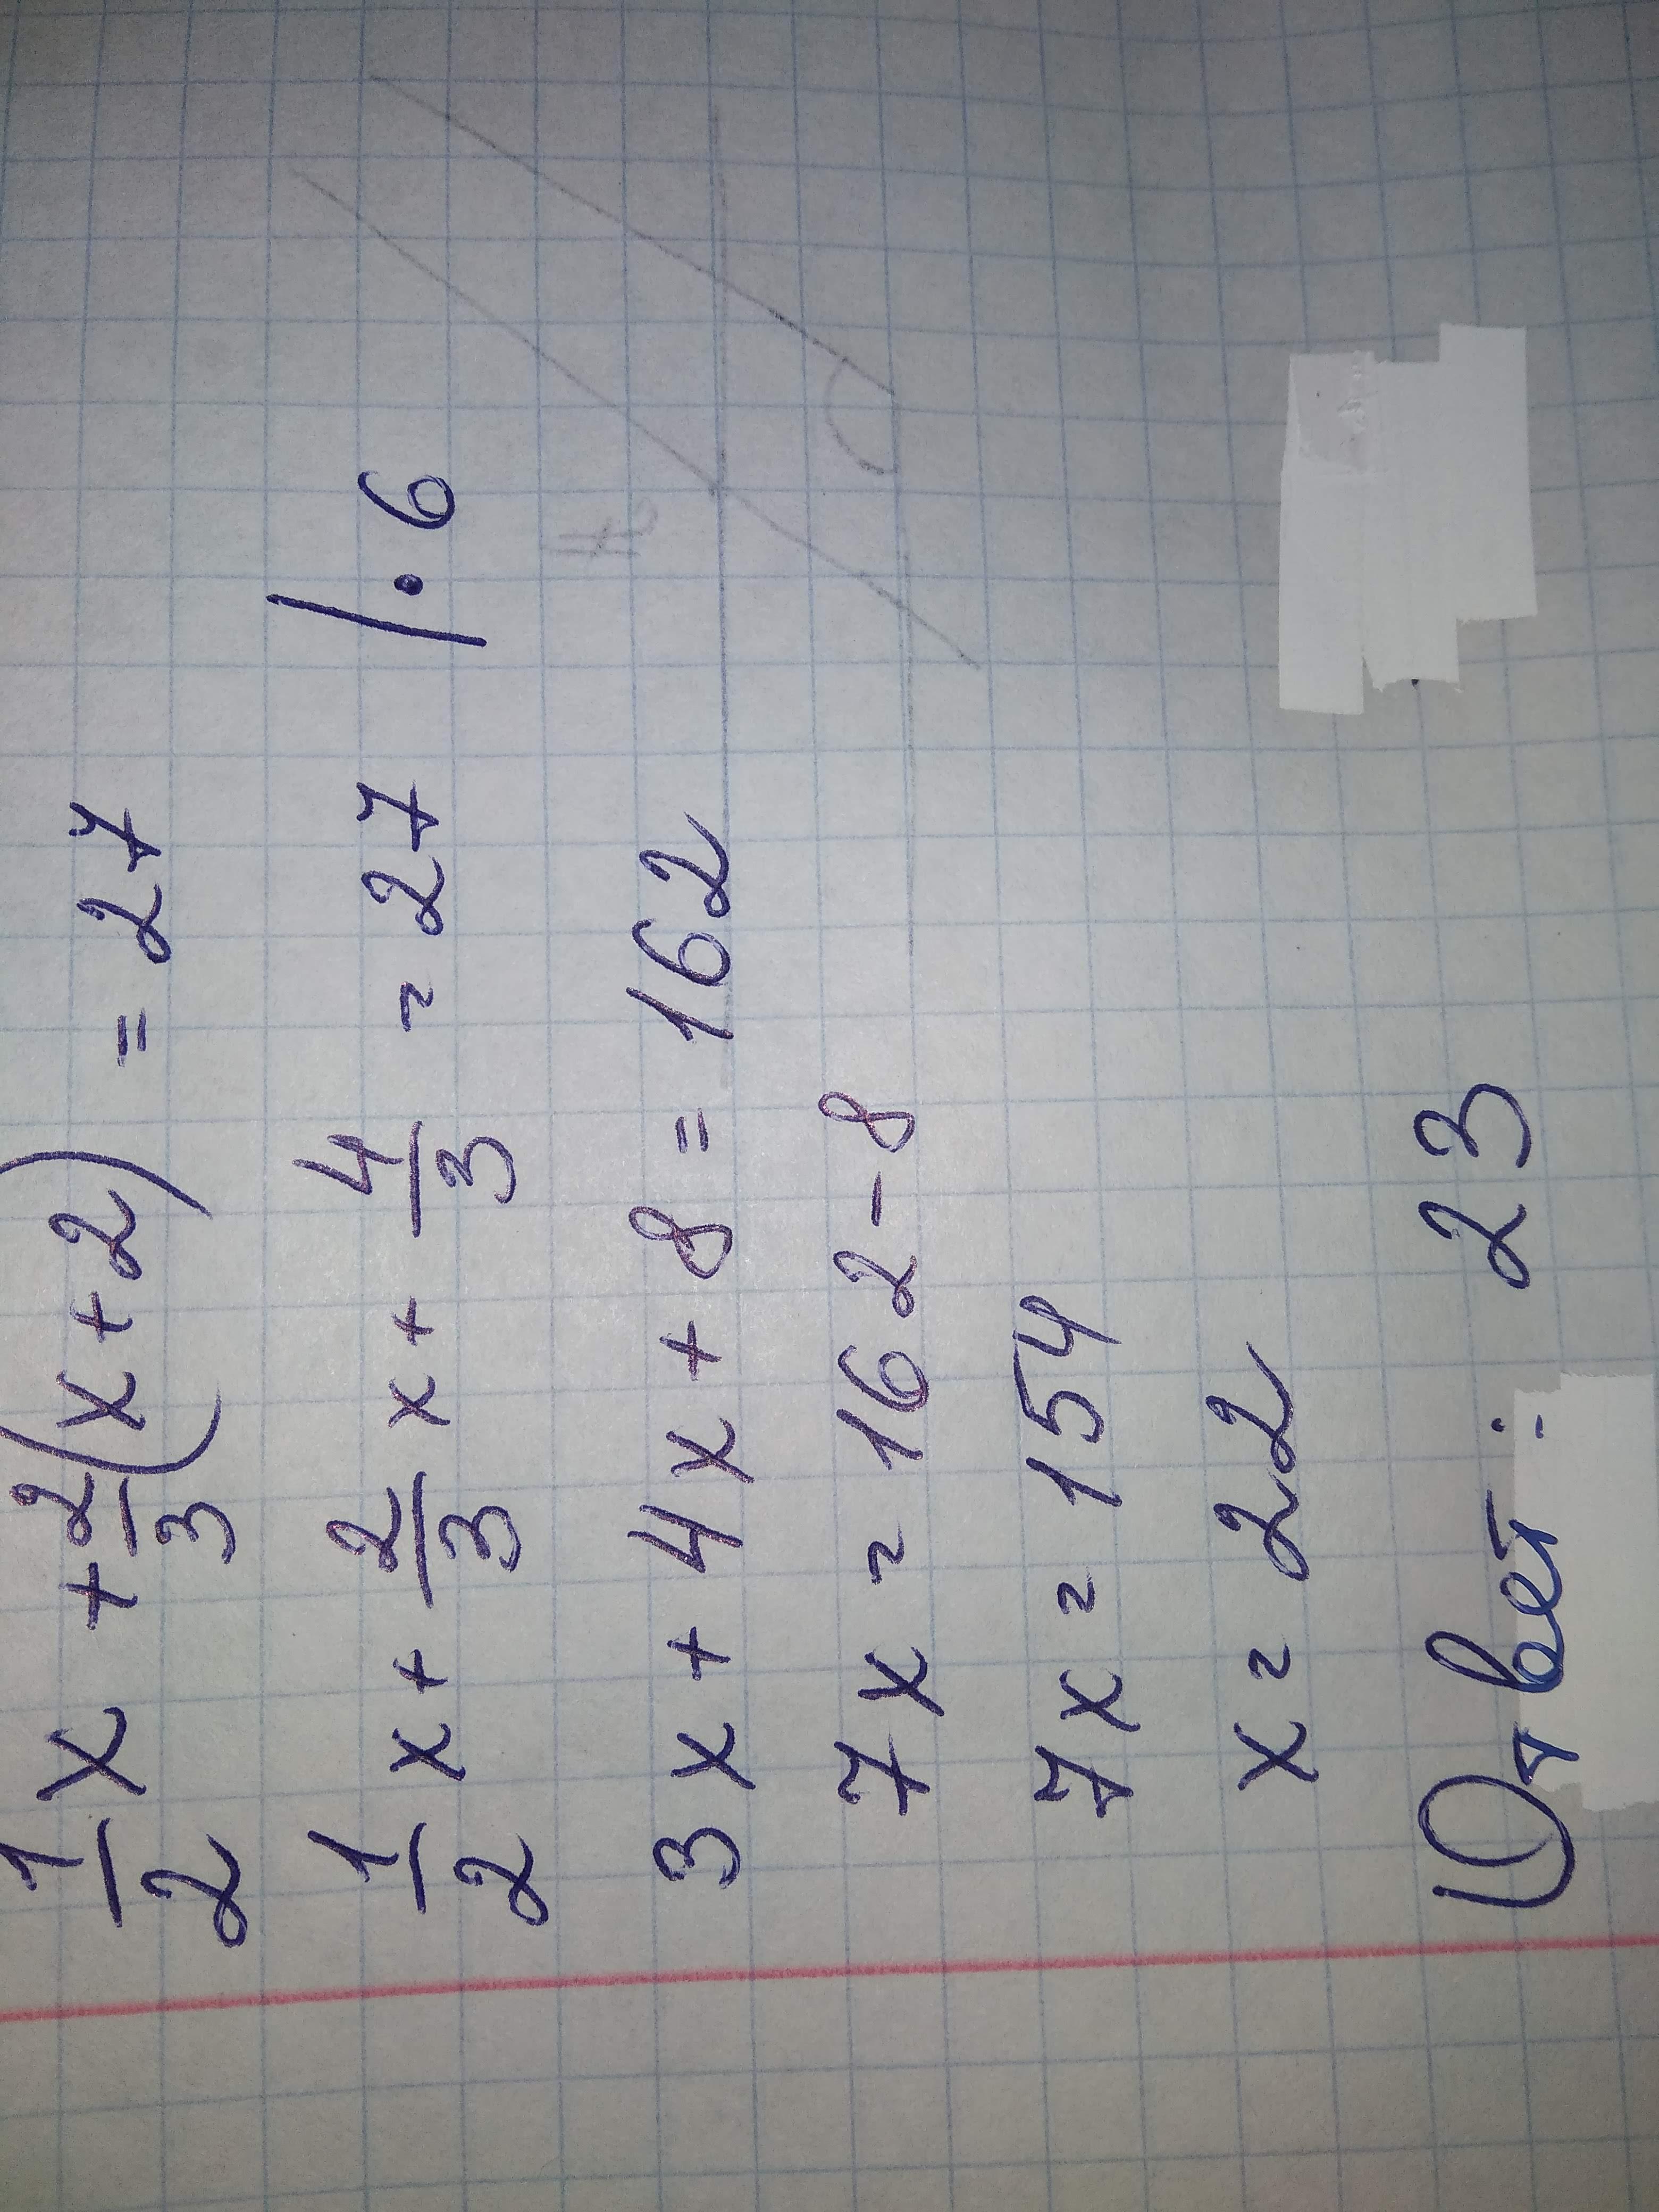 1/2 x + 2/3 (x + 2) = 27
1/2 x + 2/3 x + 4/3 = 27 / · 6
3x + 4x + 8 = 162
7x = 162 - 8
7x = 154
x = 22
Ответ: 23